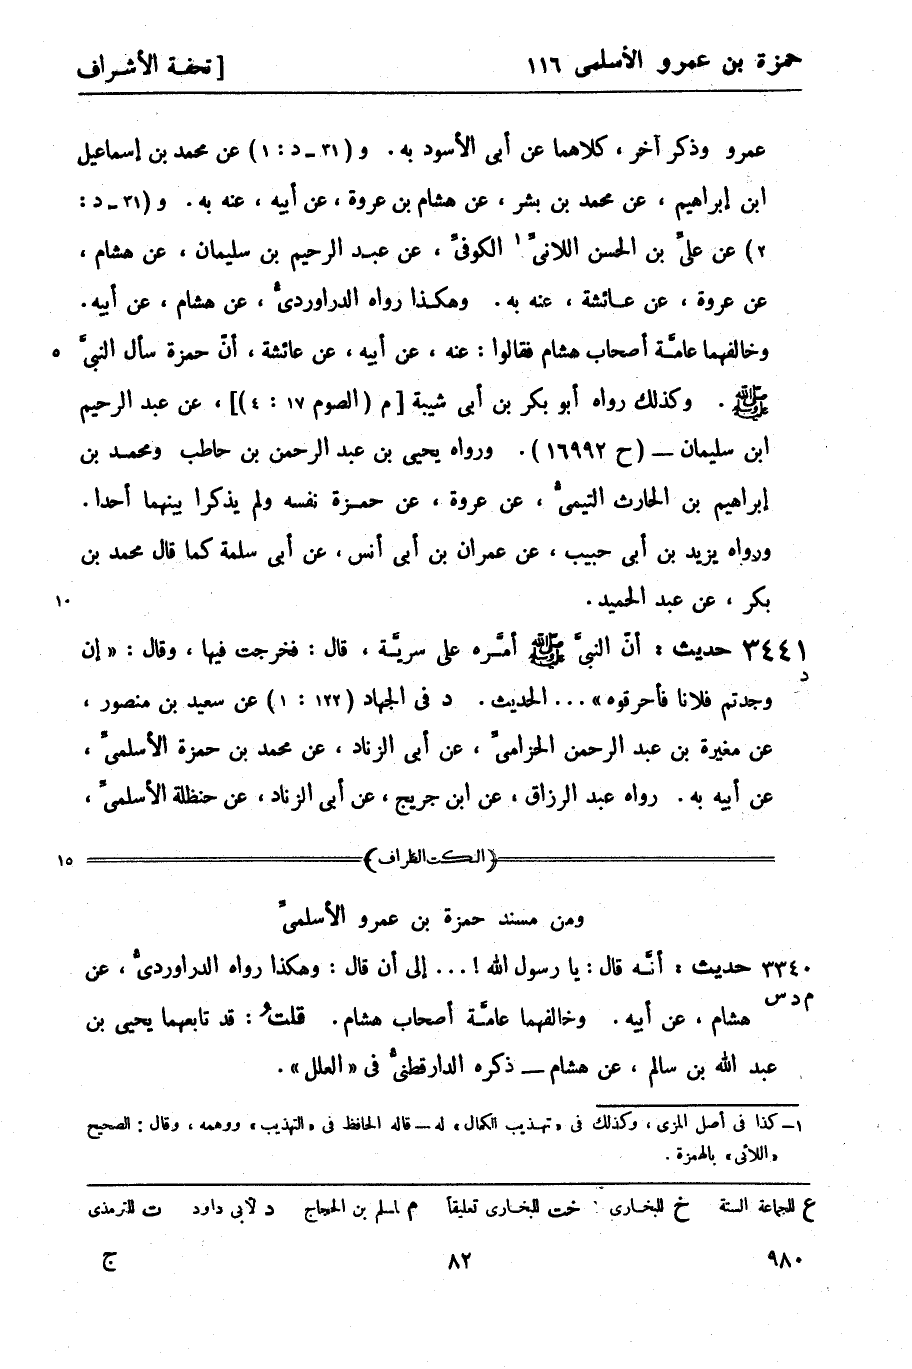 حمزة بن عمرو الأسلمى ١١٦ [ تحفة الأشراف
عمرو وذكر آخر ، كلاهما عن أبى الأسود به . و ( ٣١ ـ د : ١ ) عن محمد بن إسماعيل
ابن إبراهيم ، عن محمد بن بشر ، عن هشام بن عروة ، عن أبيه ، عنه به . و (٣١ ـ د :
٢) عن علىِّ بن الحسن اللانىِّ ١ الكوفىِّ ، عن عبد الرحيم بن سليمان ، عن هشام ،
عن عروة ، عن عائشة ، عنه به . وهكذا رواه الدراوردىُّ ، عن هشام ، عن أبيه .
وخالفهما عامَّة أصحاب هشام فقالوا : عنه ، عن أبيه ، عن عائشة ، أنّ حمزة سأل النبىَّ ٥
ﷺ . وكذلك رواه أبو بكر بن أبى شيبة [ م ( الصوم ١٧ : ٤ )] ، عن عبد الرحيم
ابن سليمان ــ ( ح ١٦٩٩٢ ) . ورواه يحيى بن عبد الرحمن بن حاطب ومحمد بن
إبراهيم بن الحارث التيمىُّ ، عن عروة ، عن حمزة نفسه ولم يذكرا بينهما أحدا .
ورواه يزيد بن أبى حبيب ، عن عمران بن أبى أنس ، عن أبى سلمة كما قال محمد بن
بكر ، عن عبد الحميد . ١٠
٣٤٤١ حديث : أنّ النبىَّ ﷺ أمَّره على سريَّة ، قال : فخرجت فيها ، وقال : « إن
د
وجدتم فلانا فأحرقوه » ... الحديث . د فى الجهاد ( ١٢٢ : ١ ) عن سعيد بن منصور ،
عن مغيرة بن عبد الرحمن الحزامىِّ ، عن أبى الزناد ، عن محمد بن حمزة الأسلمىِّ ،
عن أبيه به . رواه عبد الرزاق ، عن ابن جريج ، عن أبى الزناد ، عن حنظلة الأسلمىِّ ،
(النكت الظراف) ١٥
ومن مسند حمزة بن عمرو الأسلمىِّ
٣٣٤٠ حديث : أنَّه قال : يا رسول الله ! ... إلى أن قال : وهكذا رواه الدراوردىُّ ، عن
م د س
هشام ، عن أبيه . وخالفهما عامَّة أصحاب هشام . قلتُ : قد تابعهما يحيى بن
عبد الله بن سالم ، عن هشام ــ ذكره الدارقطنىُّ فى « العلل » .
١ــ كذا فى أصل المزى ، وكذلك فى « تهذيب الكمال » له ــ قاله الحافظ فى « التهذيب » ووهمه ، وقال : الصحيح
« اللائى » بالهمزة .
ع للجماعة الستة خ للبخارى خت للبخارى تعليقاً م لمسلم بن الحجاج د لأبى داود ت للترمذى
٩٨٠ ٨٢ ج